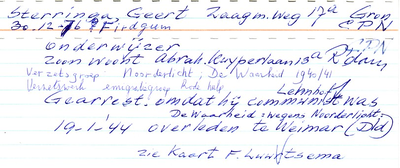 Sterringa, Geert Zaagm. Weg 17a Gron.
30.12-76 Firdgum C.P.N
onderwijzer C.P.N
zoon woont Abrah. Kuyperlaan 13a R'dam
Verzetsgroep Noorderlicht; De Waarheid 1940/41
Verzetswerk emigratiegroep Rode help
Lehnhoff
Gearrest. omdat hij communist was
De Waarheid = wegens Noorderlicht.
19-1-'44 overleden te Weimar (Dld)
zie Kaart F. Luurtsema